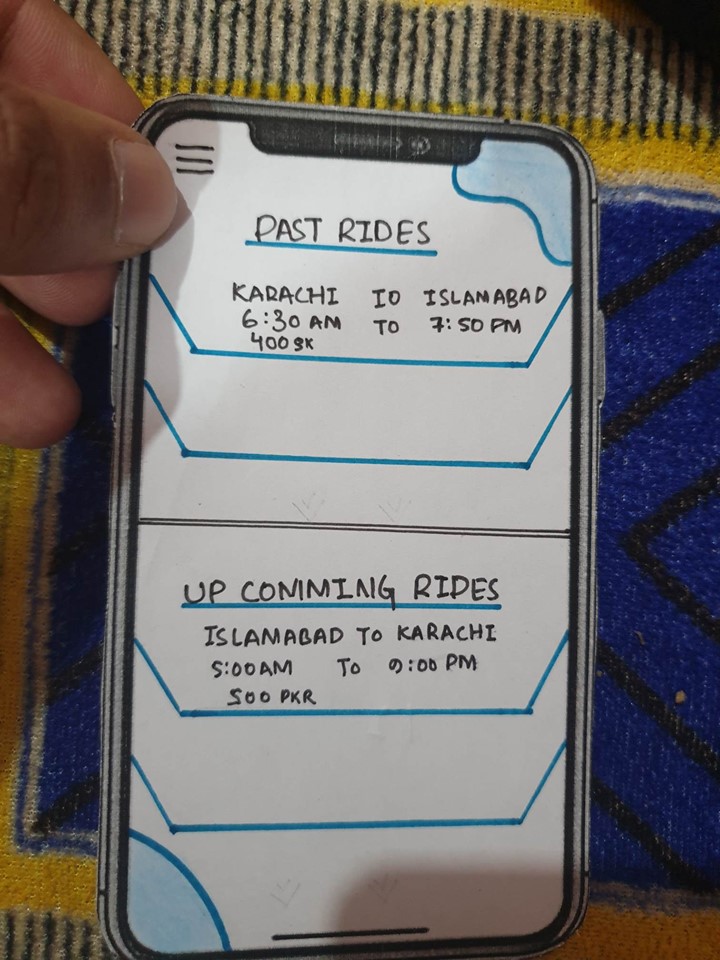 PAST RIDES
KARACHI IO ISLAMABAD
6:30 AM TO 7:50 PM
400
UP COMMING RIDES
ISLAMABAD TO KARACHI
5:00 AM TO 9:00 PM
500 PKR